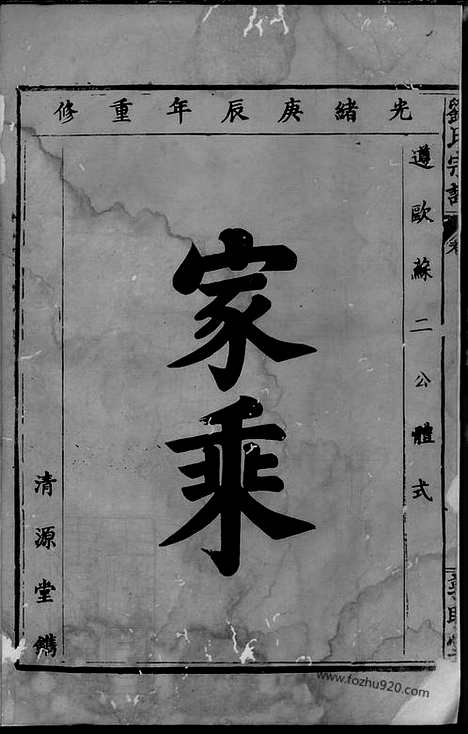 光緒庚辰年重修
遵歐蘇二公體式
家乘
清源堂鐫
劉氏宗譜
卷
www.fozhu920.com